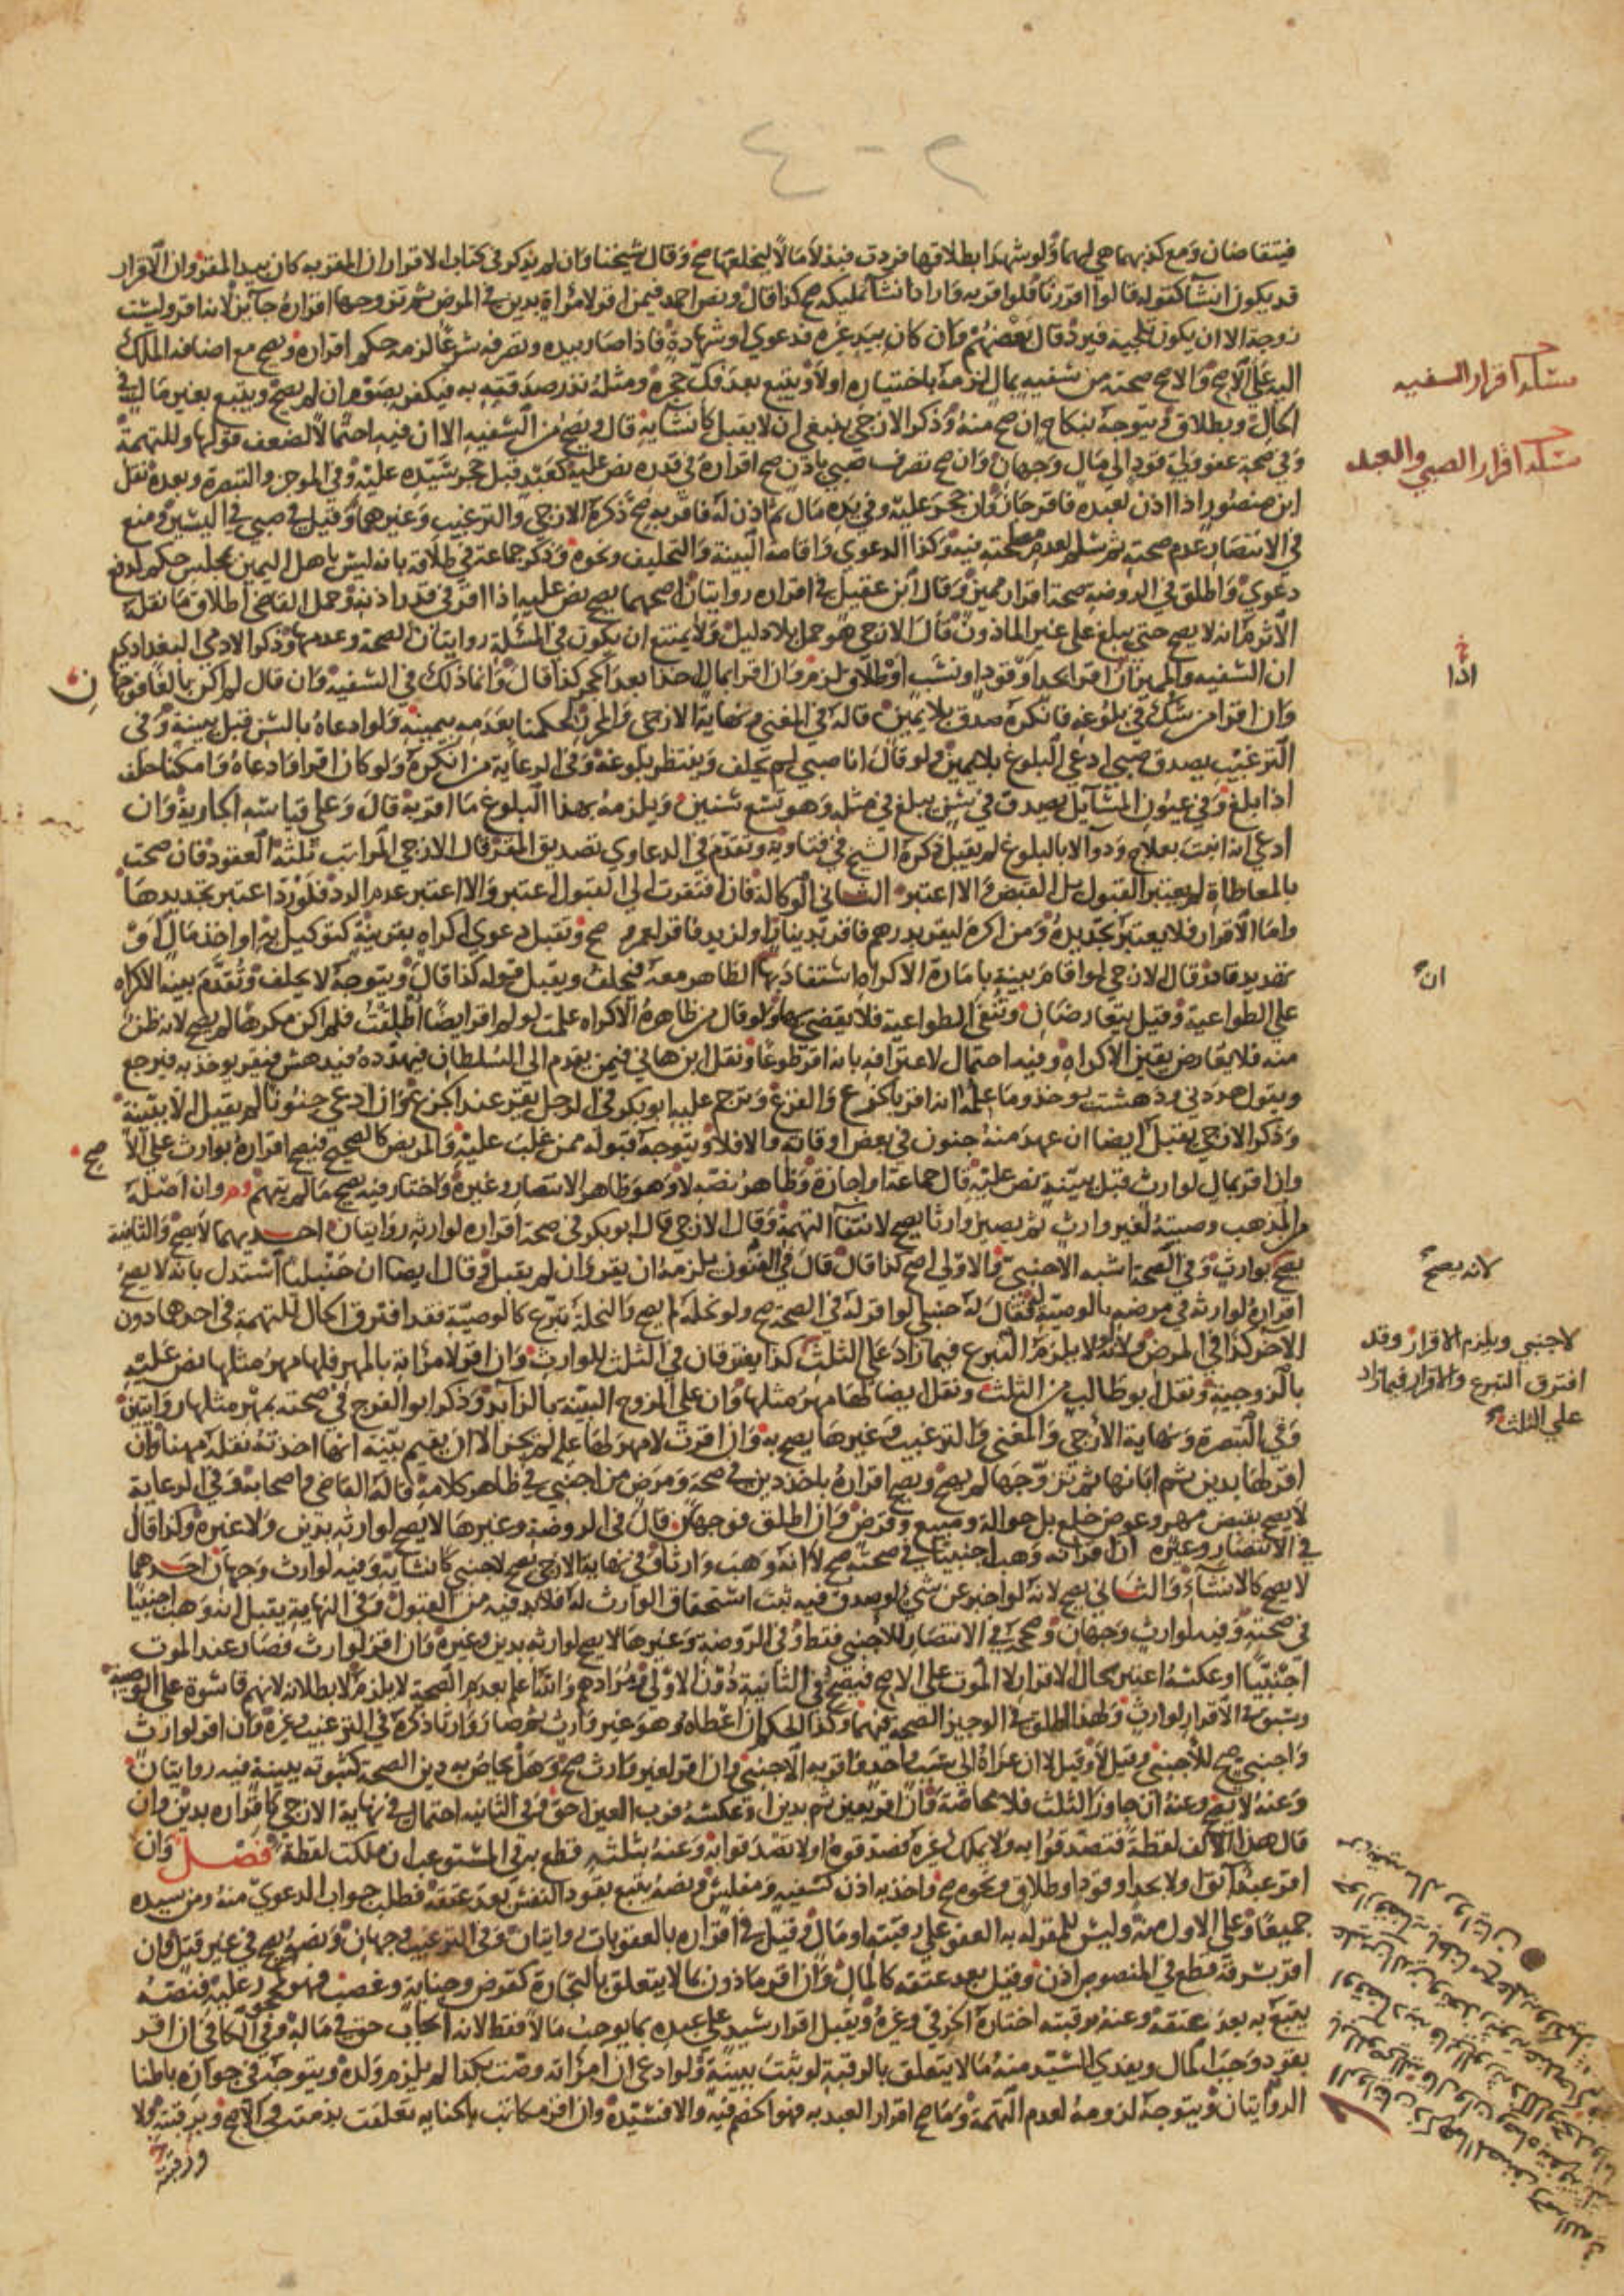 ٢ - ٤
فيتقاضان ومع كذبهما هي لهما ولو شهدا بطلاقها فردت فبذلا مالا ليخلعها صح وقال شيخنا وان لم يذكر في كتاب الاقرار ان المقر به كان بيد المقر وان الاقرار
قد يكون انشا كقوله قالوا اقررنا فلو اقر به واراد انشا تمليكه صح كذا قال ونص احمد فيمن اقر لامراة بدين في المرض ثم تزوجها اقراره جائز لانه اقر وليست
زوجة الا ان يكون تلجية فيرد قال بعضهم وان كان بيد غيره فدعوي او شهادة فاذا صار بيده وتصرفه شرعا لزمه حكم اقراره ويصح مع اضافة الملك
اليه على الاصح والاصح صحته من سفيه بمال لزمه باختياره اولا ويتبع بعد فك حجره ومثله نذر صدقته به فيكفر بصوم ان لم يصح ويتبع بغير مالي في
الحال وبطلاق ويتوجه بنكاح ان صح منه وذكر الازجي ينبغي ان لا يقبل كانشايه قال ويصح من السفيه الا ان فيه احتمالا لضعف قولها وللتهمة
وفي صحة عفو ولي قود الي مال وجهان وان صح تصرف صبي باذن صح اقراره في قدره نص عليه كعبد قبل حجر سيده عليه وفي الموجز والتبصرة وبعده نقل
ابن منصور اذا اذن لعبده فاقر جاز وان حجر عليه وفي يده مال ثم اذن له فاقر به صح ذكره الازجي والترغيب وغيرهما وقيل في صبي في اليسير ومنع
في الانتصار عدم صحته ثم سلم لعدم مصلحته فيه وكذا الدعوي واقامة البينة والتحليف ونحوه وذكر جماعة في طلاقه بانه ليس باهل اليمين بمجلس حكم لدفع
دعوي واطلق في الروضة صحة اقرار مميز وقال ابن عقيل في اقراره روايتان اصحهما يصح نص عليه اذا اقر في قدر اذنه وحمل القاضي اطلاق ما نقله
الاثرم انه لا يصح حتى يبلغ على غير الماذون قال الازجي هو حمل بلا دليل ولا يمتنع ان يكون في المسئلة روايتان الصحة وعدمها وذكر الادمي البغدادي
ان السفيه والمميز ان اقرا بحد او قود او نسب او طلاق لزم وان اقرا بمال اخذا بعد الحجر كذا قال وانما ذلك في السفيه وان قال لم اكن بالغا فوجهان
وان اقر من شك في بلوغه فانكره صدق بلا يمين قاله في المغني ونهاية الازجي والمحرر لحكمنا بعدمه بيمينه ولو ادعاه بالسن قبل ببينة وفي
الترغيب يصدق صبي ادعي البلوغ بلا يمين ولو قال انا صبي لم يحلف وينتظر بلوغه وفي الرعاية من انكره ولو كان اقر او ادعاه وامكنا حلف
اذا بلغ وفي عيون المسايل يصدق في سن يبلغ في مثله وهو تسع سنين ويلزمه بهذا البلوغ ما اقر به قال وعلى قياسه الجارية وان
ادعي انه انبت بعلاج ودواء لا بالبلوغ لم يقبل ذكره الشيخ في فتاويه وتقدم في الدعاوي تصديق المقر قال الازجي المراتب ثلثة العقود فان صحت
بالمعاطاة لم يعتبر القبول بل القبض والا اعتبر الثاني الوكالة فان افتقرت الي القبول اعتبر والا اعتبر عدم الرد فلو رد اعتبر تجديدها
واما الاقرار فلا يعتبر تجديده ومن اكره ليقر بدرهم فاقر بدينار او لزيد فاقر لعمرو صح وتقبل دعوي اكراه بقرينة كتوكيل به او اخذ مال او
تهديد قادر قال الازجي لو اقام بينة بامارة الاكراه استفاد بها الظاهر معه فيحلف ويقبل قوله كذا قال ويتوجه لا يحلف وتقدم بينة الاكراه
على الطواعية وقيل يتعارضان وتبقى الطواعية فلا يقضى بها ولو قال من ظاهره الاكراه علمت لو لم اقر ايضا اطلقت فلم اكن مكرها لم يصح لانه ظن
منه فلا يعارض يقين الاكراه وفيه احتمال لاعترافه بانه اقر طوعا ونقل ابن هاني فيمن يقدم الى السلطان فيهدده فيدهش فيقر يوخذ به فيرجع
ويقول هددني ودهشت يوخذ وما علمه انه اقر بالجزع والفزع وترجم عليه ابو بكر في الرجل يقر عند الجزع وان ادعي جنونا لم يقبل الا ببينة
وذكر الازجي يقبل ايضا ان عهد منه جنون في بعض اوقاته والا فلا ويتوجه قبوله ممن غلب عليه والمريض كالصحيح فيصح اقراره بوارث على الاصح
وان اقر بمال لوارث قبل ببينة نص عليه قال جماعة او اجازة وظاهر نصه لا وهو ظاهر الانتصار وغيره واختار فيه يصح ما لم يتهم وان اصله
من المذهب وصيته لغير وارث ثم يصير وارثا يصح لانتفاء التهمة وقال الازجي قال ابو بكر في صحة اقراره لوارثه روايتان احديهما لا يصح والثانية
يصح بوارث وفي الصحة اشبه الاجنبي والاولى اصح كذا قال قال في الفنون يلزمه ان يقر وان لم يقبل وقال ايضا ان حنبليا استدل بانه لا يصح
اقراره لوارثه في مرضه بالوصية له فقال له حنبلي لو اقر له في الصحة صح ولو نحله لم يصح والنحلة تبرع كالوصية فقد افترق الحال للتهمة في احدهما دون
الاخر كذا في المرض ولانه لا يلزم التبرع فيما زاد على الثلث كذا يفترقان في الثلث للوارث وان اقر لامراته بالمهر فلها مهر مثلها نص عليه
بالزوجية ونقل ابو طالب من الثلث ونقل ايضا لها مهر مثلها وان على الزوج البينة بالزايد وذكر ابو الفرج في صحته بمهر مثلها روايتين
وفي التبصرة ونهاية الازجي والمغني والترغيب وغيرها يصح به وان اقرت لا مهر لها عليه لم يجز الا ان يقيم بينة انها اخذته نقله مهنا وان
اقر لها بدين ثم ابانها ثم تزوجها لم يصح ويصح اقراره باخذ دين في صحة ومرض من اجنبي في ظاهر كلامه قاله القاضي واصحابه وفي الرعاية
لا يصح بقبض مهر وعوض خلع بل حوالة ومبيع وقرض وان اطلق فوجهان قال في الروضة وغيرها لا يصح لوارثه بدين ولا غيره وكذا قال
في الانتصار وغيره ان اقر انه وهب اجنبيا في صحته صح لا انه وهب وارثا وفي نهاية الازجي يصح لاجنبي كانشايه وفيه لوارث وجهان احدهما
لا يصح كالانشاء والثاني يصح لانه لو اخبر عن شيء لو صدق فيه ثبت استحقاق الوارث له فلا بد فيه من القبول وفي النهاية يقبل انه وهب اجنبيا
في صحته وفيه لوارث وجهان وصححه في الانتصار لاجنبي فقط وفي الروضة وغيرها لا يصح لوارثه بدين وغيره وان اقر لوارث فصار عند الموت
اجنبيا او عكسه اعتبر بحال الاقرار لا الموت على الاصح فيصح في الثانية دون الاولى ومرادهم والله اعلم بعدم الصحة لا يلزم لا بطلانه لانهم قاسوه على الوصية
وسبق في الاقرار لوارث ولهذا اطلق في الوجيز الصحة فيهما وكذا الحكم ان اعطاه وهو غير وارث ثم صار وارثا ذكره في الترغيب وغيره وان اقر لوارث
واجنبي صح للاجنبي وقيل لا وقيل الا ان عزاه الي سبب واحد واقر به الاجنبي وان اقر لغير وارث صح وهل يحاص به دين الصحة كثبوته ببينة فيه روايتان
وعنه لا يصح وعنه ان جاوز الثلث فلا محاصة وان اقر بعين ثم بدين او عكسه فرب العين احق وفي الثانية احتمال في نهاية الازجي كاقراره بدين وان
قال هذا الالف لقطة فتصدقوا به ولا يملك غيره فصدقوه اولا تصدقوا به وعنه بثلثه قطع به في المستوعب ان ملكت لقطة فصل وان
اقر عبد ابق اولا بحد او قود او طلاق ونحوه صح واخذ به اذن كسفيه ومفلس ونصه يتبع بقود النفس بعد عتقه فطلب جواب الدعوي منه ومن سيده
جميعا وعلى الاول منه وليس للمقر له به العفو على رقبته او مال وقيل في اقراره بالعقوبات روايتان وفي الترغيب وجهان ونصه يصح في غير قتل وان
اقر بسرقة قطع في المنصوص اذن وقيل بعد عتقه كالمال وان اقر ماذون بما لا يتعلق بالتجارة كقرض وجناية وغصب فهو كمحجور عليه فنصه
يتبع به بعد عتقه وعنه برقبته اختاره الخرقي وغيره ويقبل اقرار سيد على عبده بما يوجب مالا فقط لانه ايجاب حق في ماله وفي الكافي ان اقر
بقود وجب المال ويفدي السيد منه ما لا يتعلق بالرقبة لو ثبت ببينة ولو ادعى ان امراته وضت بكذا لم يلزم ولده ويتوجه في جوازه باطنا
الروايتان ويتوجه لزومه لعدم التهمة وما صح اقرار العبد به فهو الخصم فيه والا فسيده وان اقر مكاتب بالجناية تعلقت بذمته في الاصح وبرقبته ولا
ورقبته
مسئلة اقرار السفيه
مسئلة اقرار الصبي والعبد
اذا
ان
لانه يصح
لاجنبي ويلزم الاقرار وقد
افترق التبرع والاقرار فيما زاد
على الثلث
ن
صح